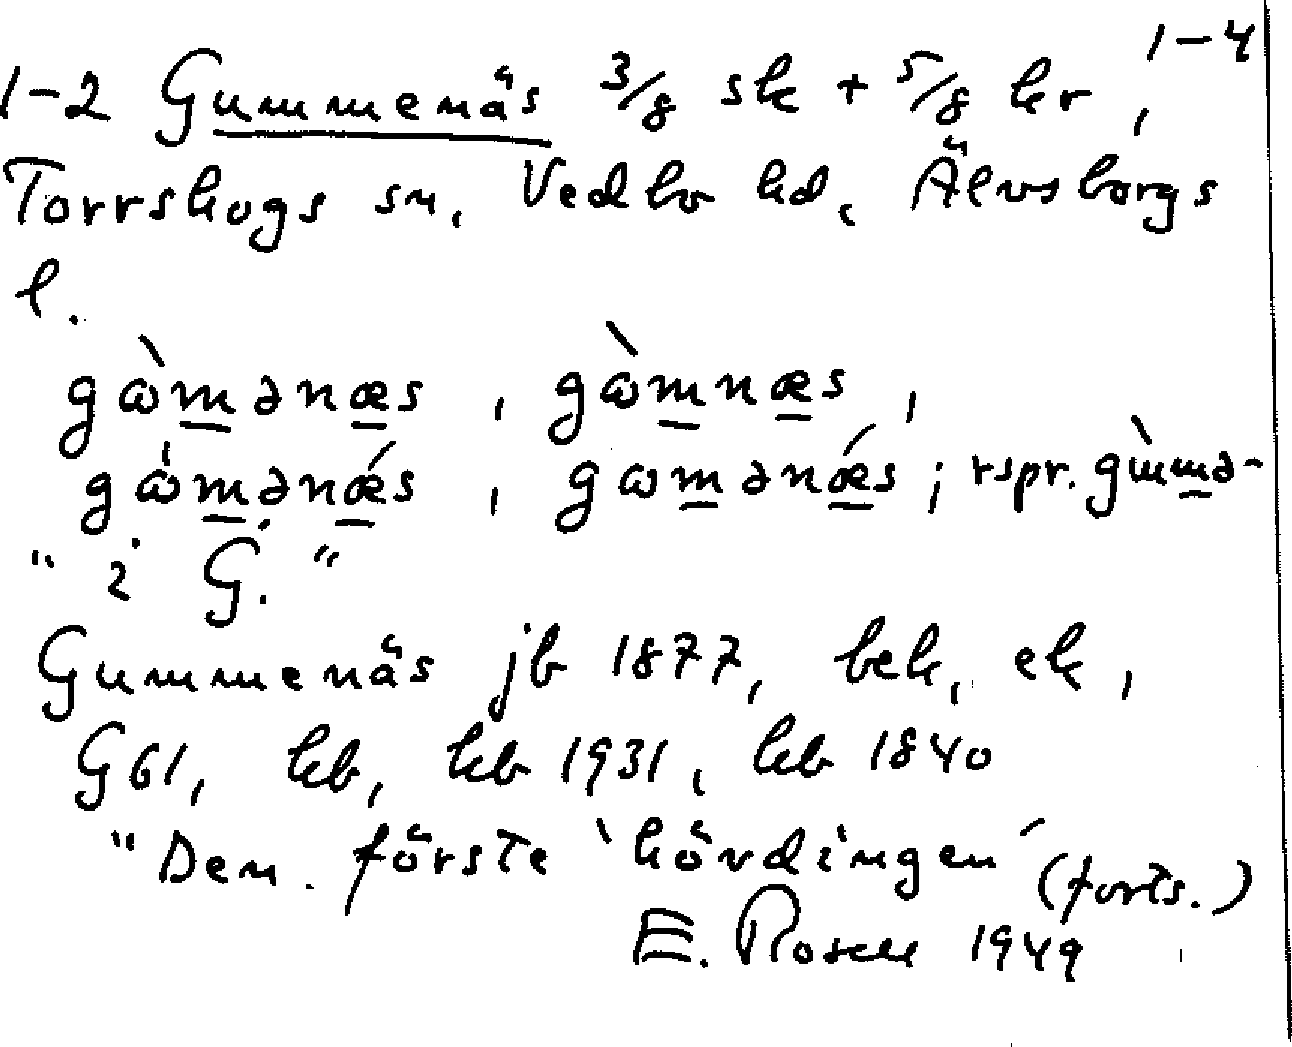 1-4
1-2 Gummenäs 3/8 sk + 5/8 kr,
Torrskogs sn, Vedbo hd, Älvsborgs
l.
gὼmənæs, gὼmnæs,
gώmənǽs, gωmənǽs; rspr. gùmmə-
"i G."
Gummenäs jb 1877, bek, ek,
G61, kb, kb 1931, kb 1840
"Den förste 'hövdingen' (forts.)
E. Rosell 1949